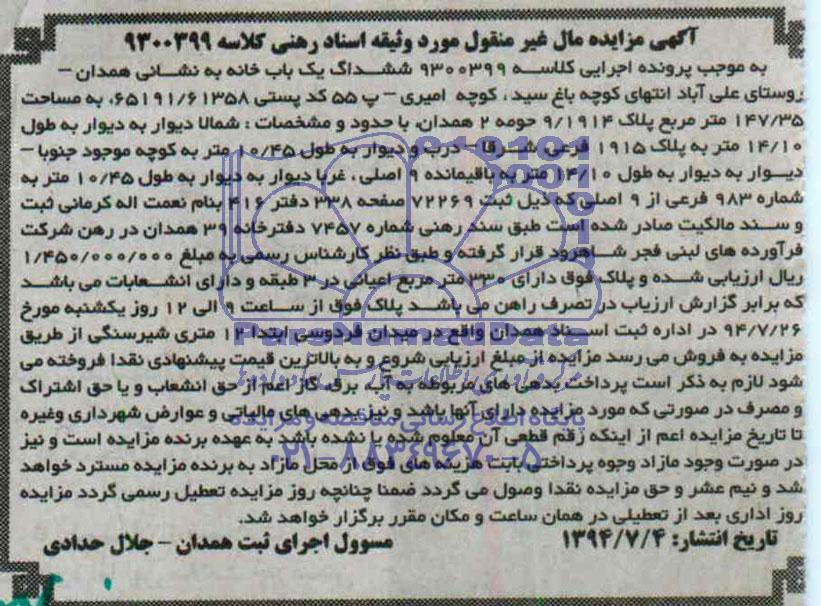 آگهی مزایده مال غیر منقول مورد وثیقه اسناد رهنی کلاسه ۹۳۰۰۳۹۹
به موجب پرونده اجرایی کلاسه ۹۳۰۰۳۹۹ ششداگ یک باب خانه به نشانی همدان –
روستای علی آباد انتهای کوچه باغ سید ، کوچه امیری – پ ۵۵ کد پستی ۶۵۱۹۱/۶۱۳۵۸، به مساحت
۱۴۷/۳۵ متر مربع پلاک ۹/۱۹۱۴ حومه ۲ همدان، با حدود و مشخصات : شمالا دیوار به دیوار به طول
۱۴/۱۰ متر به پلاک ۱۹۱۵ فرعی، شرقا – درب و دیوار به طول ۱۰/۴۵ متر به کوچه موجود جنوبا –
دیوار به دیوار به طول ۱۴/۱۰ متر به باقیمانده ۹ اصلی ، غربا دیوار به دیوار به طول ۱۰/۴۵ متر به
شماره ۹۸۳ فرعی از ۹ اصلی که ذیل ثبت ۷۲۲۶۹ صفحه ۳۳۸ دفتر ۴۱۶ بنام نعمت اله کرمانی ثبت
و سند مالکیت صادر شده است طبق سند رهنی شماره ۷۴۵۷ دفترخانه ۳۹ همدان در رهن شرکت
فرآورده های لبنی فجر شاهرود قرار گرفته و طبق نظر کارشناس رسمی به مبلغ ۱/۴۵۰/۰۰۰/۰۰۰
ریال ارزیابی شده و پلاک فوق دارای ۳۳۰ متر مربع اعیانی در ۳ طبقه و دارای انشعابات می باشد
که برابر گزارش ارزیاب در تصرف راهن می باشد پلاک فوق از ساعت ۹ الی ۱۲ روز یکشنبه مورخ
۹۴/۷/۲۶ در اداره ثبت اسناد همدان واقع در میدان فردوسی ابتدا ۱۲ متری شیرسنگی از طریق
مزایده به فروش می رسد مزایده از مبلغ ارزیابی شروع و به بالاترین قیمت پیشنهادی نقدا فروخته می
شود لازم به ذکر است پرداخت بدهی های مربوطه به آب، برق، گاز اعم از حق انشعاب و یا حق اشتراک
و مصرف در صورتی که مورد مزایده دارای آنها باشد و نیز بدهی های مالیاتی و عوارض شهرداری وغیره
تا تاریخ مزایده اعم از اینکه رقم قطعی آن معلوم شده یا نشده باشد به عهده برنده مزایده است و نیز
در صورت وجود مازاد وجوه پرداختی بابت هزینه های فوق از محل مازاد به برنده مزایده مسترد خواهد
شد و نیم عشر و حق مزایده نقدا وصول می گردد ضمنا چنانچه روز مزایده تعطیل رسمی گردد مزایده
روز اداری بعد از تعطیلی در همان ساعت و مکان مقرر برگزار خواهد شد.
تاریخ انتشار: ۱۳۹۴/۷/۴ مسوول اجرای ثبت همدان – جلال حدادی
ParsNamadData
پایگاه اطلاع رسانی مناقصه و مزایده
۰۲۱-۸۸۳۴۹۶۷۰-۵